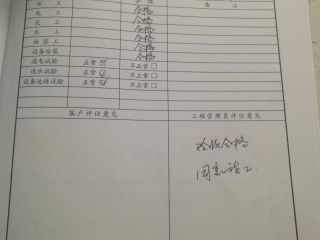 水 工 合格 备 注
电 工 合格
瓦 工 合格
木 工 合格
油 漆 工 合格
设备安装 合格
通电试验 正常☑ 不正常☐
通水试验 正常☑ 不正常☐
设备运转试验 正常☑ 不正常☐
客户评估意见 工程管理员评估意见
验收合格
同意竣工.